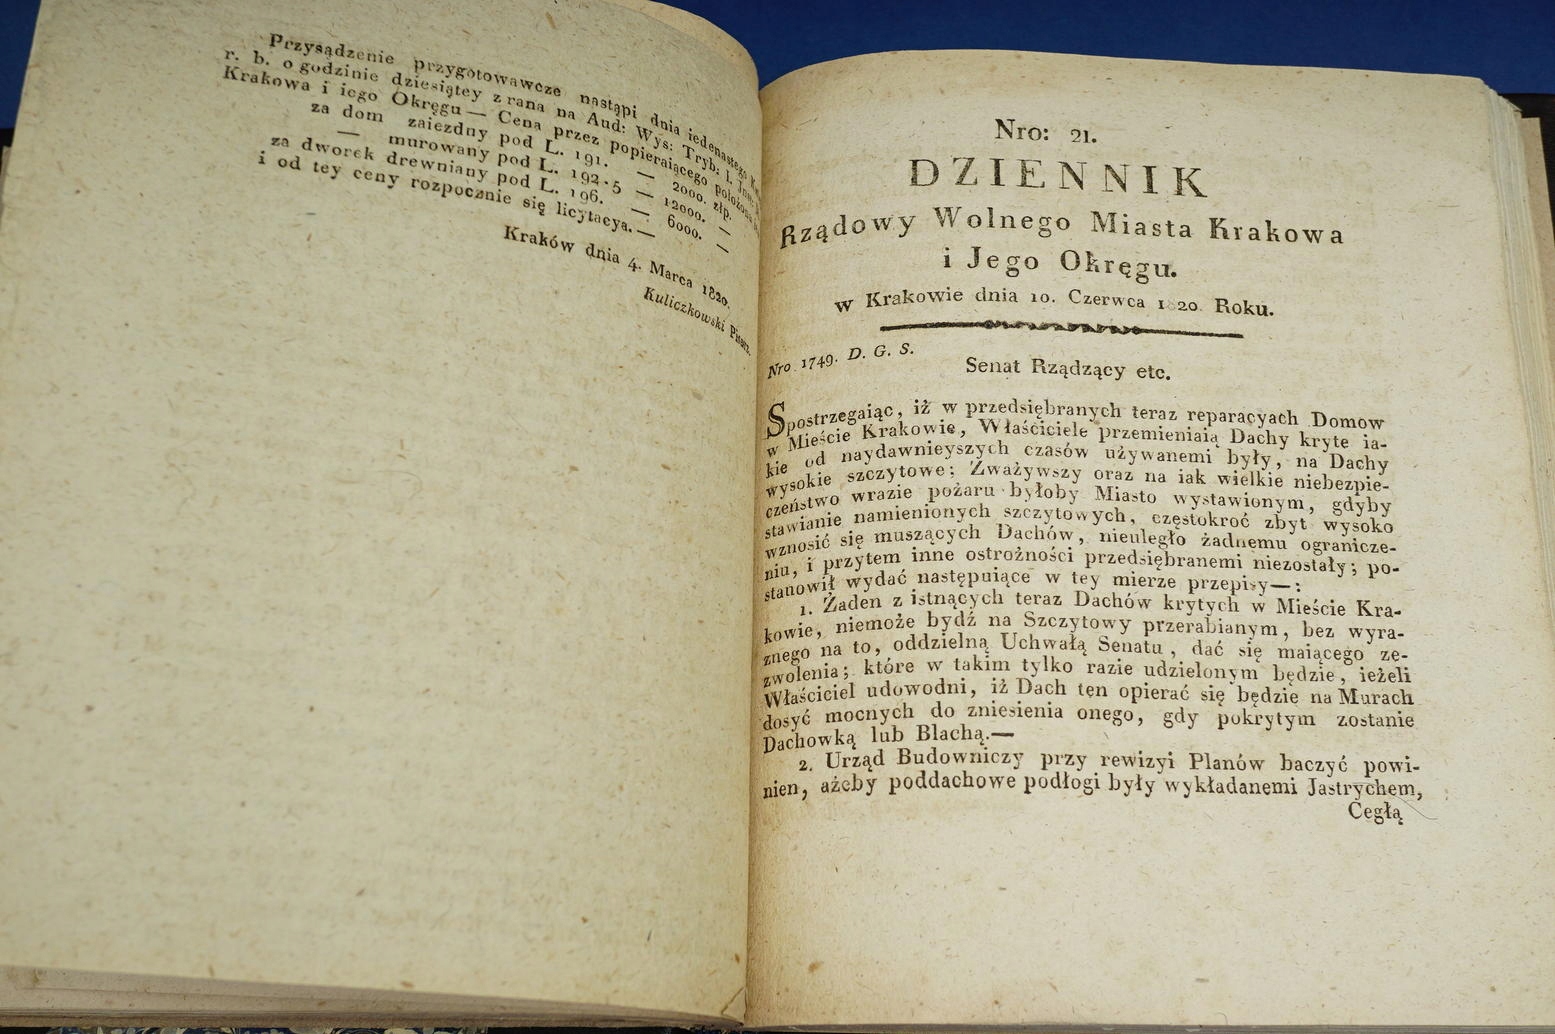 Przysądzenie przygotowawcze nastąpi dnia iedenastego
r. b. o godzinie dziesiątey z rana na Aud: Wys: Tryb: I.
Krakowa i iego Okręgu — Cena przez popieraiącego położona
za dom zaiezdny pod L. 191. — 2000. złp.
— murowany pod L. 192. 5 — 12000. —
za dworek drewniany pod L. 196. — 6000. —
i od tey ceny rozpocznie się licytacya. —
Kraków dnia 4. Marca 1820.
Kuliczkowski Pisarz.
Nro: 21.
DZIENNIK
Rządowy Wolnego Miasta Krakowa
i Jego Okręgu.
w Krakowie dnia 10. Czerwca 1820 Roku.
Nro 1749. D. G. S.
Senat Rządzący etc.
Spostrzegaiąc, iż w przedsiębranych teraz reparacyach Domow
w Mieście Krakowie, Właściciele przemieniaią Dachy kryte ia-
kie od naydawnieyszych czasów używanemi były, na Dachy
wysokie szczytowe; Zważywszy oraz na iak wielkie niebezpie-
czeństwo wrazie pożaru byłoby Miasto wystawionym, gdyby
stawianie namienionych szczytowych, częstokroć zbyt wysoko
wznosić się muszących Dachów, nieuległo żadnemu ogranicze-
niu, i przytem inne ostrożności przedsiębranemi niezostały; po-
stanowił wydać następuiące w tey mierze przepisy—:
1. Żaden z istnących teraz Dachów krytych w Mieście Kra-
kowie, niemoże bydź na Szczytowy przerabianym, bez wyra-
znego na to, oddzielną Uchwałą Senatu, dać się maiącego ze-
zwolenia; które w takim tylko razie udzielonym będzie, ieżeli
Właściciel udowodni, iż Dach ten opierać się będzie na Murach
dosyć mocnych do zniesienia onego, gdy pokrytym zostanie
Dachowką lub Blachą.—
2. Urząd Budowniczy przy rewizyi Planów baczyć powi-
nien, ażeby poddachowe podłogi były wykładanemi Jastrychem,
Cegłą